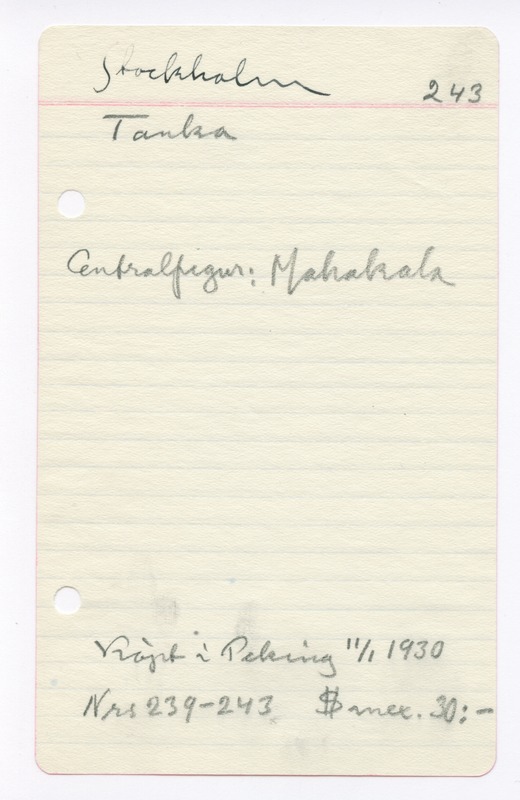 Stockholm
243
Tanka
Centralfigur: Mahakala
Köpt i Peking 11/1 1930
Nrs 239-243 $ mex. 30:-